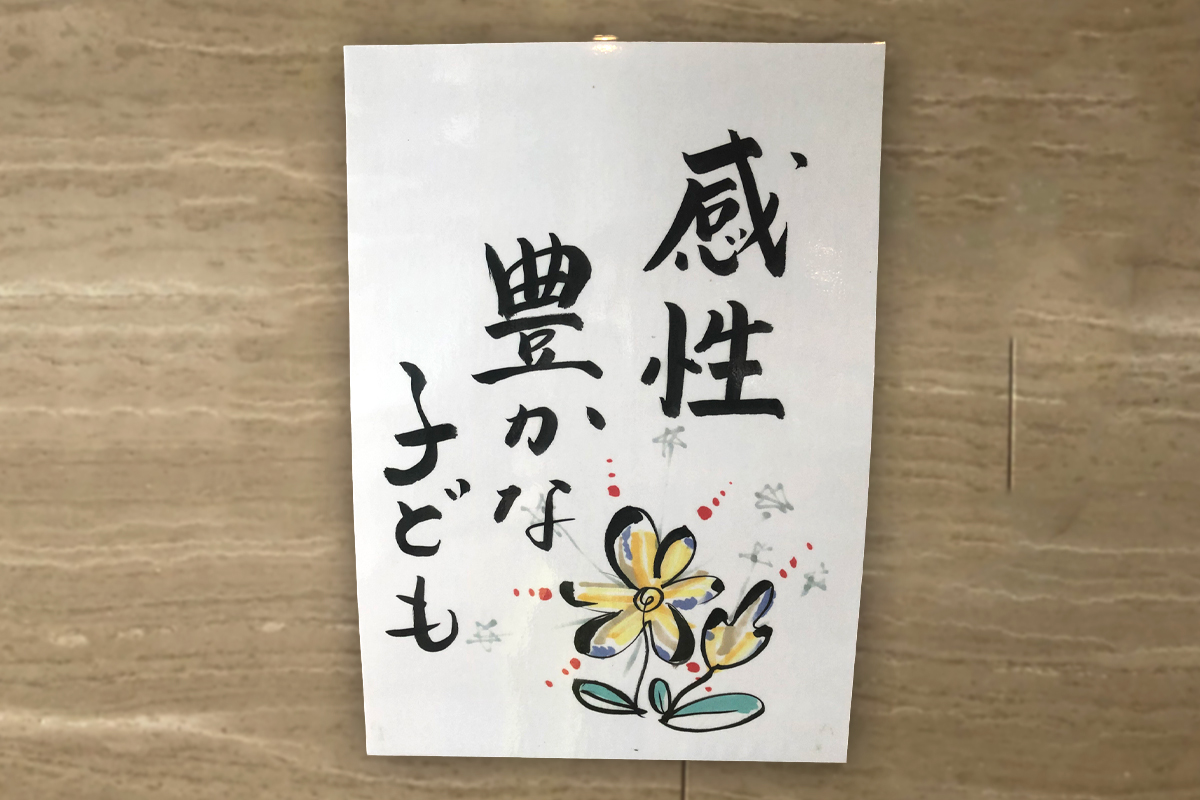 感性
豊かな
子ども